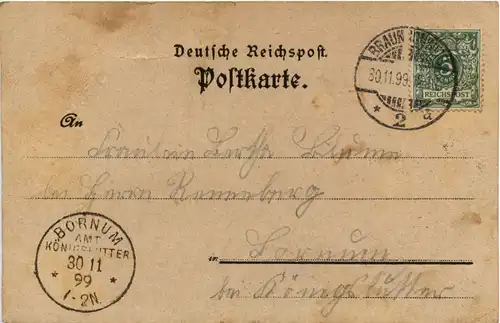 Deutsche Reichspost.
Postkarte.
BRAUNSCHWEIG
30.11.99.
* 2 d
5
REICHSPOST
An
Fräulein Bertha Blume
bei Herrn Renneberg
in Bornum
bei Königslutter
BORNUM
AMT
KÖNIGSLUTTER
30 11
* 99 *
1-2N.